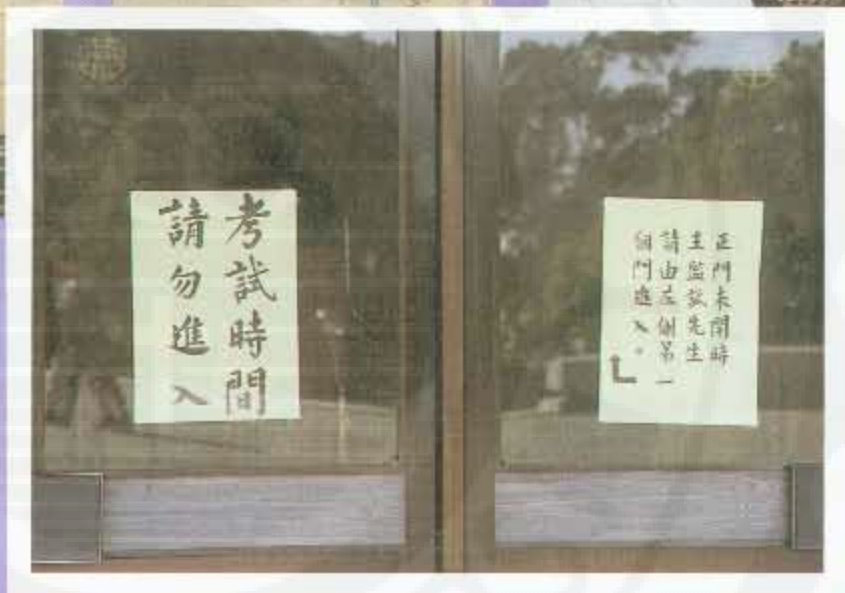 考試時間
請勿進入
正門未開時
主監致先生
請由左側第一
個門進入。